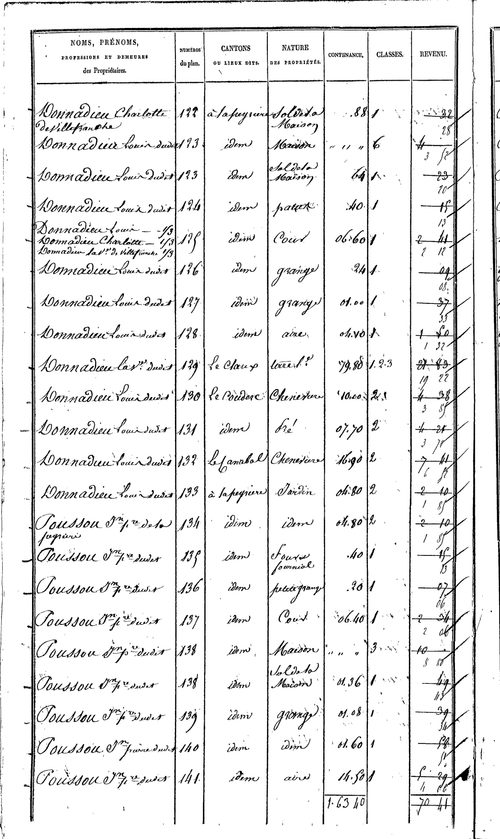 NOMS, PRÉNOMS, PROFESSIONS ET DEMEURES des Propriétaires. NUMÉROS du plan. CANTONS OU LIEUX DITS. NATURE DES PROPRIÉTÉS. CONTENANCE. CLASSES. REVENU.
Donnadieu Charlotte de Villefranche 122 à lapeyriere Sol de la Maison .88 1 32 28
Donnadieu Louis dudit 123 idem Maison " " " 6 4
Donnadieu Louis dudit 123 idem Sol de la Maison 64 1 23 20
Donnadieu Louis dudit 124 idem .40 1 15 13
Donnadieu Louis — 1/3
Donnadieu Charlotte — 1/3 125 idem Cour 06.60 1 2 41
Donnadieu la Ve de Villefranche 1/3 2 12
Donnadieu Louis dudit 126 idem grange 24 1 09 08
Donnadieu Louis dudit 127 idem grange 01.00 1 37 33
Donnadieu Louis dudit 128 idem aire 04.40 1 1 60 1 32
Donnadieu la Ve dudit 129 Le Claux terre 79.80 1.2.3 21 83 19 22
Donnadieu Louis dudit 130 Cheneviere 10.00 4 38
Donnadieu Louis dudit 131 idem Pré 07.70 2 4
Donnadieu Louis dudit 132 Le Canabal Cheneviere 16.90 2 7 41
Donnadieu Louis dudit 133 à lapeyriere Jardin 04.80 2 2 10 1 85
Poussou Jn pre de la peyriere 134 idem idem 04.80 2 2 10 1 85
Poussou Jn pre dudit 135 idem Four et fournial .40 1 15 13
Poussou Jn pre dudit 136 idem petite grange .20 1 07 06
Poussou Jn pre dudit 137 idem Cour 06.40 1 2 34 2 06
Poussou Jn pre dudit 138 idem Maison " " " 3 10
Poussou Jn pre dudit 138 idem Sol de la Maison 01.36 1 49 43
Poussou Jn pre dudit 139 idem grange 01.08 1 39 34
Poussou Jn pierre dudit 140 idem idem 01.60 1 58
Poussou Jn pre dudit 141 idem aire 14.50 1 5 29
1.63 40 70 41